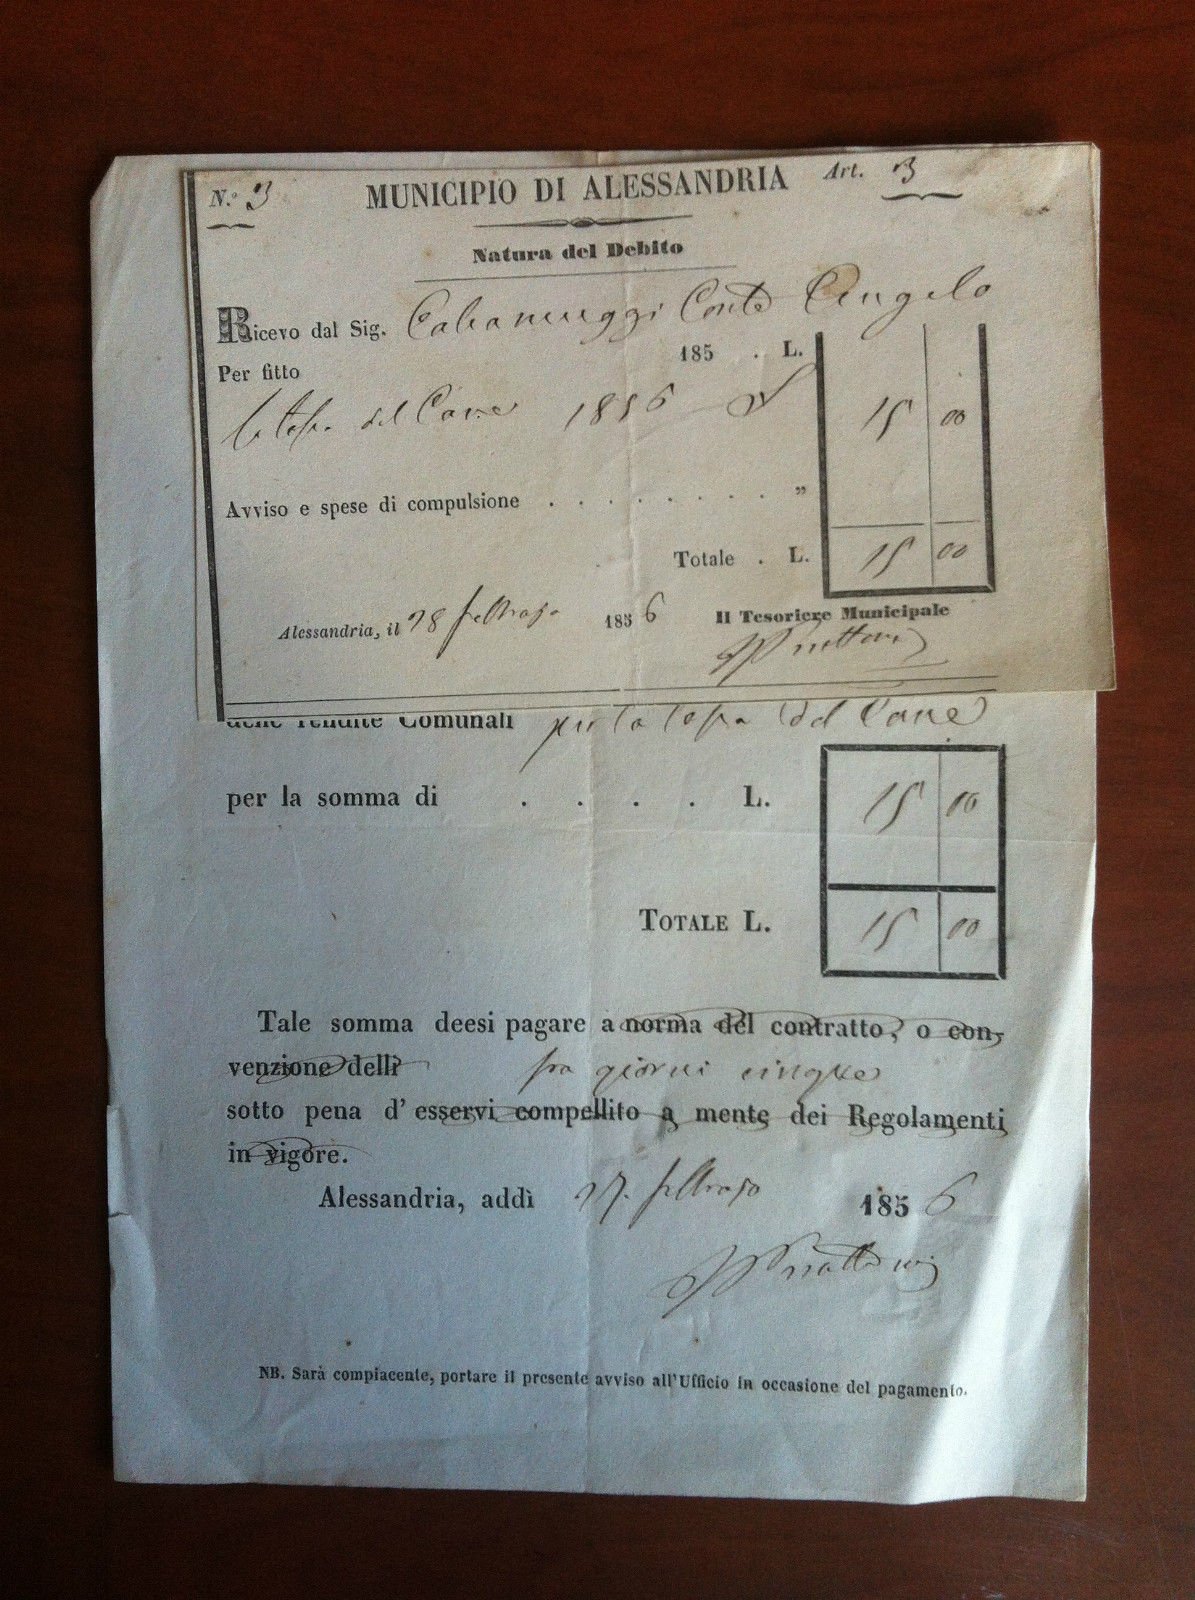 N.º 3 MUNICIPIO DI ALESSANDRIA Art. 3
Natura del Debito
Ricevo dal Sig. Conte Angelo
Per fitto 185 . L.
la tassa del Cane 1856 15 00
Avviso e spese di compulsione . . . . . . . . „
Totale . L. 15 00
Alessandria, il 28 febbrajo 1856 Il Tesoriere Municipale
delle rendite Comunali per la tassa del Cane
per la somma di . . . . L. 15 00
TOTALE L. 15 00
Tale somma deesi pagare a norma del contratto, o con-
venzione delli fra giorni cinque
sotto pena d' esservi compellito a mente dei Regolamenti
in vigore.
Alessandria, addì 27. febbrajo 1856
NB. Sarà compiacente, portare il presente avviso all'Ufficio in occasione del pagamento.